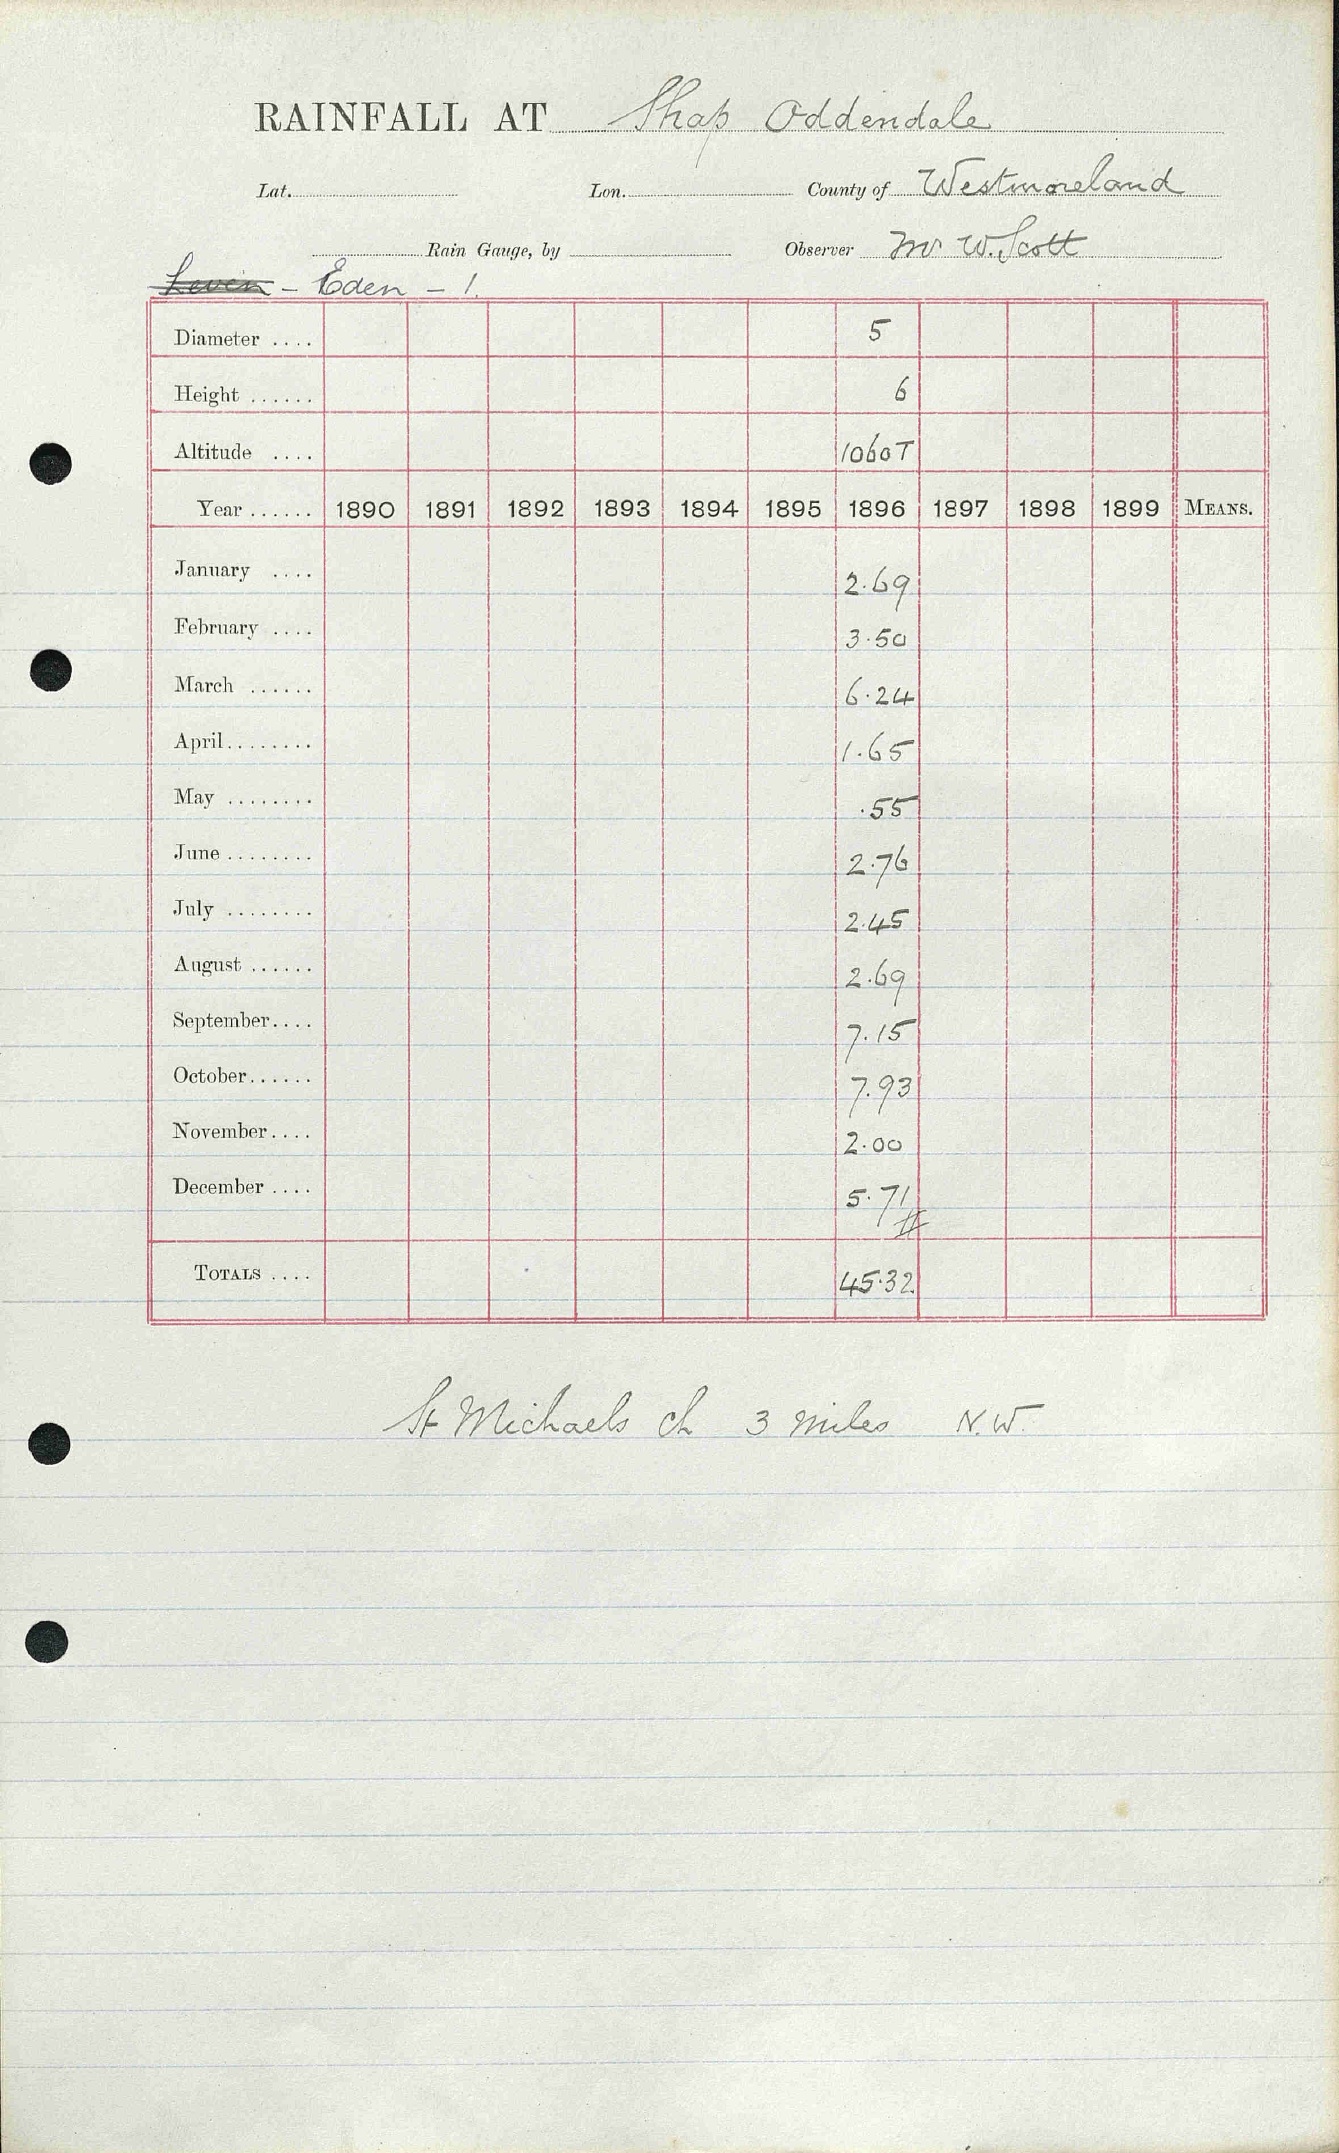 RAINFALL AT Shap Oddendale
Lat. Lon. County of Westmoreland
Rain Gauge, by Observer Mr W. Scott
Leven - Eden - 1.
Diameter .... 5
Height ...... 6
Altitude .... 1060T
Year ...... 1890 1891 1892 1893 1894 1895 1896 1897 1898 1899 MEANS.
January .... 2.69
February .... 3.50
March ...... 6.24
April........ 1.65
May ........ .55
June ........ 2.76
July ........ 2.45
August ...... 2.69
September.... 7.15
October...... 7.93
November.... 2.00
December .... 5.71
TOTALS .... 45.32
St Michaels ch 3 miles N.W.